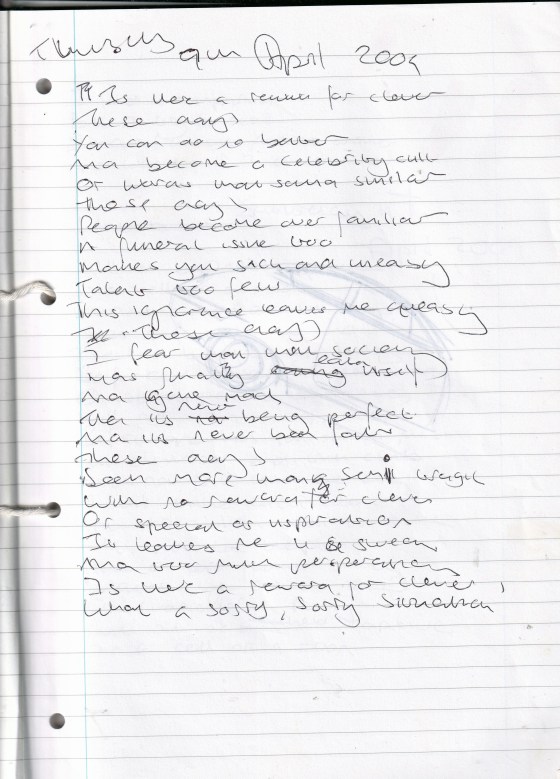 Thursday 9th April 2009
Is there a reward for clever
These days
You can do no better
And become a celebrity cult
Or words that sound similar
These days
People become over familiar
Makes you sick and uneasy
Talent too few
This ignorance leaves me queasy
These days
I fear that society
Has finally eaten itself
And gone mad
That it's never being perfect
And it's never been fair
These days
Seem more
With no reward for clever
Or special or inspiration
It leaves me in a sweat
And too much perspiration
Is there a reward for clever,
What a sorry, sorry situation